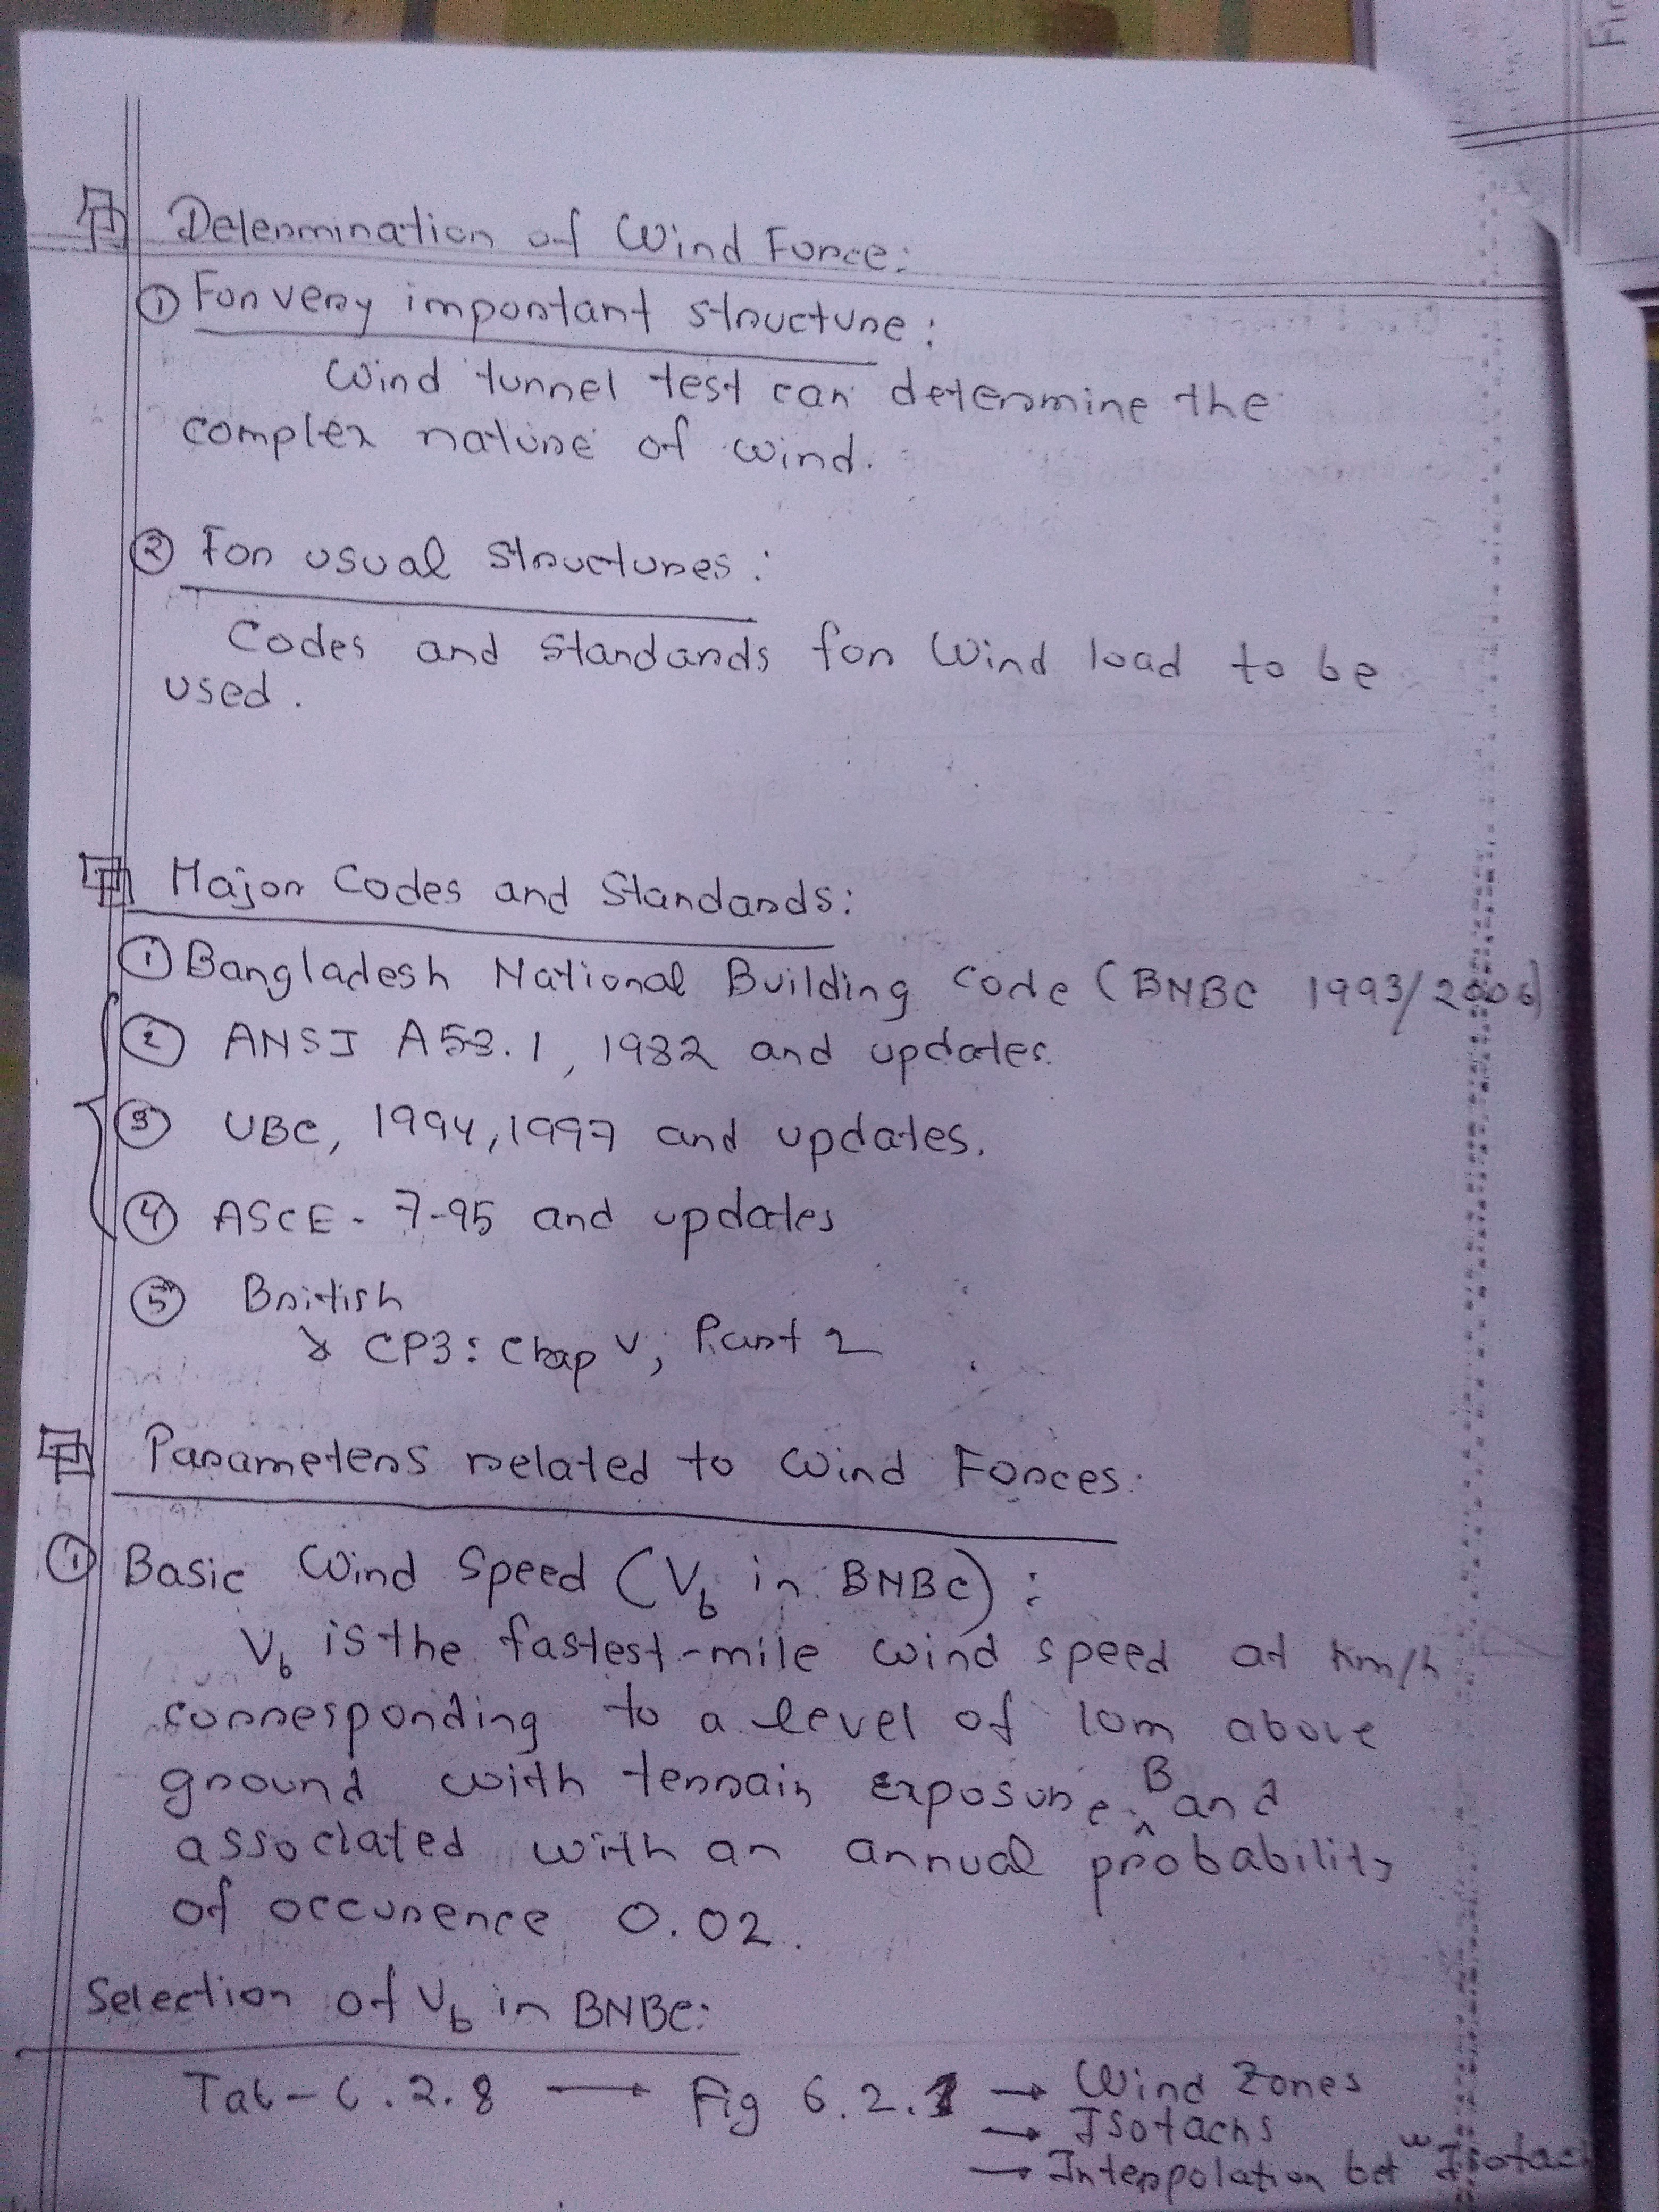 Determination of Wind Force:
① For very important structure:
Wind tunnel test can determine the
complex nature of wind.
② For usual structures:
Codes and standards for Wind load to be
used.
Major Codes and Standards:
① Bangladesh National Building Code (BNBC 1993/2006)
② ANSI A58.1, 1982 and updates.
③ UBC, 1994, 1997 and updates.
④ ASCE - 7-95 and updates
⑤ British
↘ CP3: Chap V, Part 2
Parameters related to Wind Forces.
① Basic Wind Speed (Vb in BNBC):
Vb is the fastest-mile wind speed at km/h
corresponding to a level of 10m above
ground with terrain exposure B and
associated with an annual probability
of occurence 0.02.
Selection of Vb in BNBC:
Tab-6.2.8 → Fig 6.2.1 → Wind Zones
→ Isotachs
→ Interpolation betw Isotach